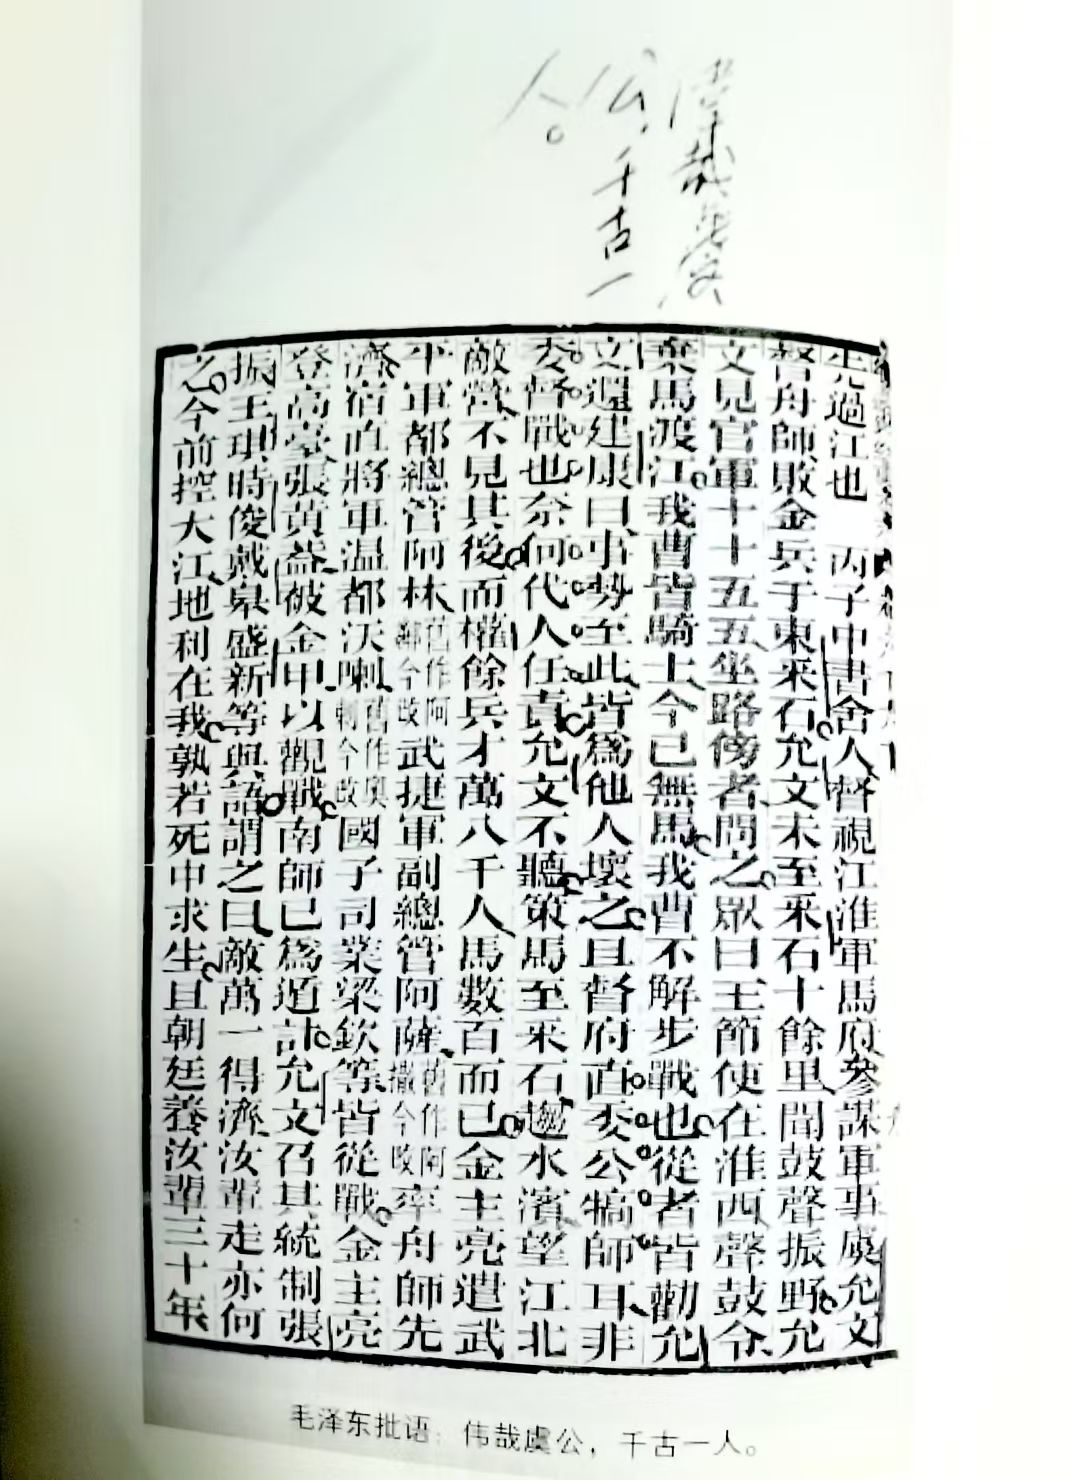 伟哉虞
公，千古一
人。
先過江也　丙子中書舍人督視江淮軍馬府參謀軍事虞允文
督舟師敗金兵于東采石允文未至采石十餘里聞鼓聲振野允
文見官軍十十五五坐路傍者問之眾曰王節使在淮西聲鼓令
棄馬渡江我曹皆騎士今已無馬我曹不解步戰也從者皆勸允
文還建康曰事勢至此皆爲他人壞之且督府直委公犒師耳非
委督戰也奈何代人任責允文不聽策馬至采石趨水濱望江北
敵營不見其後而權餘兵才萬八千人馬數百而已金主亮遣武
平軍都總管阿林舊作阿鄰今改武捷軍副總管阿薩舊作阿撒今改率舟師先
濟宿直將軍温都沃喇舊作奧剌今改國子司業梁欽等皆從戰金主亮
登高臺張黃蓋被金甲以觀戰南師已爲遁計允文召其統制張
振王琪時俊戴皋盛新等與語謂之曰敵萬一得濟汝輩走亦何
之今前控大江地利在我孰若死中求生且朝廷養汝輩三十年
毛泽东批语：伟哉虞公，千古一人。